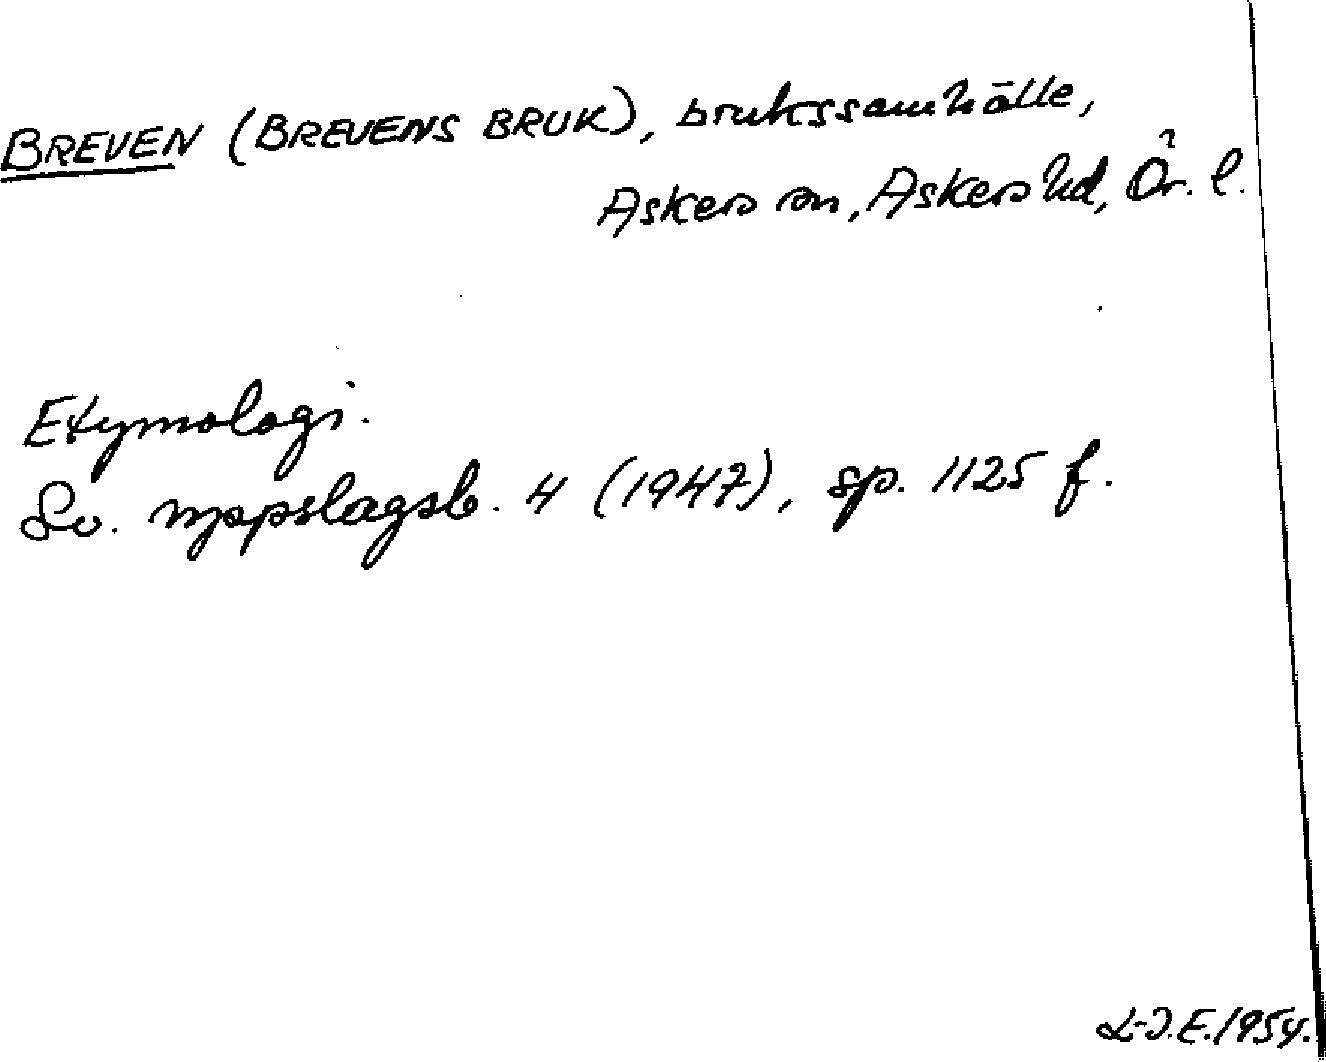 BREVEN (BREVENS BRUK), brukssamhälle,
Askers sn, Askers hd, Ör. l.
Etymologi.
Sv. uppslagsb. 4 (1947), sp. 1125 f.
L-J.E. 1954.